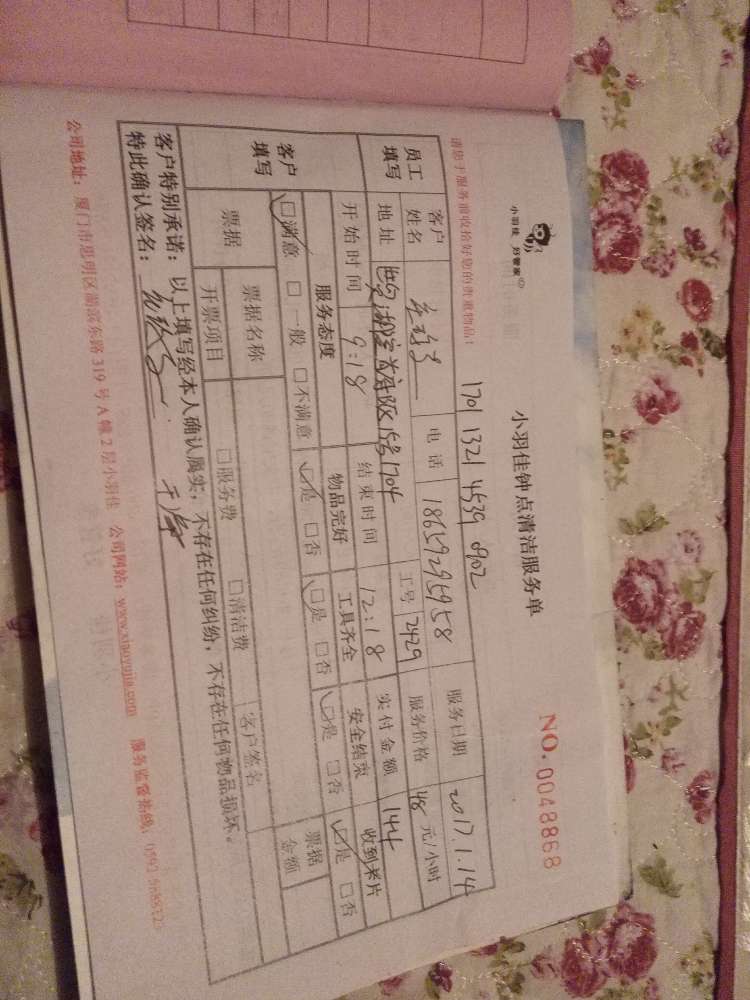 小羽佳 好管家
小羽佳钟点清洁服务单
NO.0048868
请您于服务前收拾好您的贵重物品!
1701 1321 4539 0902
员工填写
客户姓名 电话 18659295958 服务日期 2017.1.14
地址 15号1704 工号 2429 服务价格 48 元/小时
开始时间 9:18 结束时间 12:18 实付金额 144
客户填写
服务态度 物品完好 工具齐全 安全结束 收到卡片
☑满意 □一般 □不满意 ☑是 □否 ☑是 □否 ☑是 □否 ☑是 □否
票据 票据名称 客户签名 票据金额
开票项目 □服务费 □清洁费
客户特别承诺:以上填写经本人确认属实,不存在任何纠纷,不存在任何物品损坏。
特此确认签名:
公司地址:厦门市思明区湖滨东路319号A幢2层小羽佳 公司网站:www.xiaoyujia.com 服务监督热线: